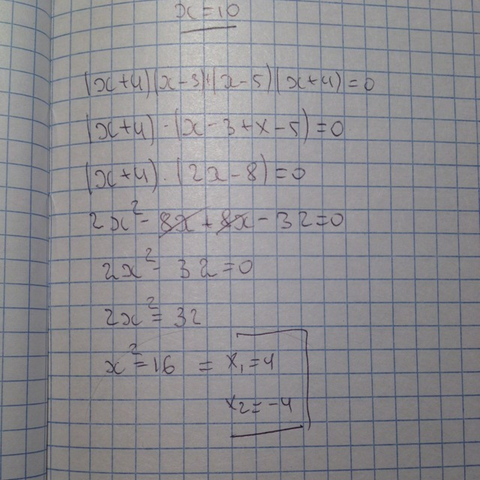 x=10
(x+4)(x-3)+(x-5)(x+4)=0
(x+4)·(x-3+x-5)=0
(x+4)·(2x-8)=0
2x²-8x+8x-32=0
2x²-32=0
2x²=32
x²=16 = x₁=4
x₂=-4